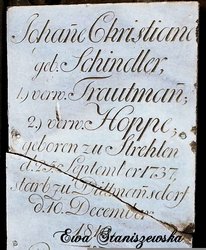 Johañe Christiane
geb. Schindler,
1, verw. Trautman̄,
2, verw. Hoppe,
geboren zu Strehlen
d. 25. September 1737,
starb zu Dittman̄sdorf
d. 10. December
Ewa Staniszewska